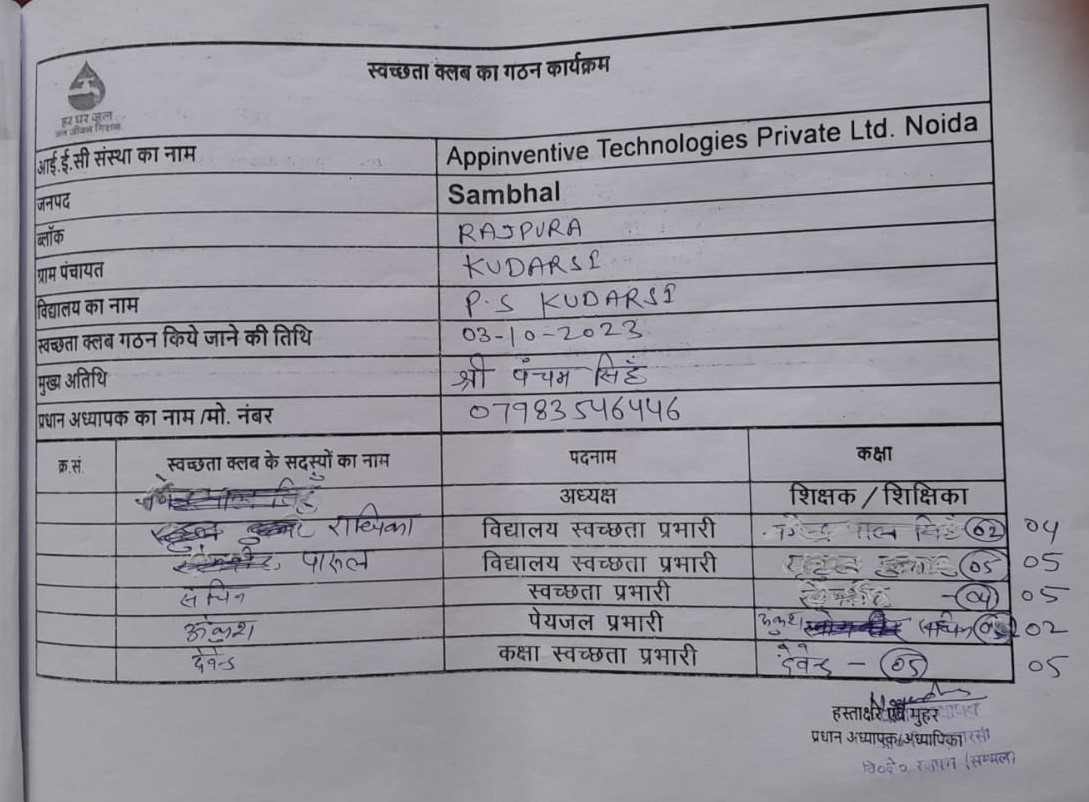 स्वच्छता क्लब का गठन कार्यक्रम
हर घर जल
जल जीवन मिशन
आई.ई.सी संस्था का नाम Appinventive Technologies Private Ltd. Noida
जनपद Sambhal
ब्लॉक RAJPURA
ग्राम पंचायत KUDARSI
विद्यालय का नाम P.S KUDARSI
स्वच्छता क्लब गठन किये जाने की तिथि 03-10-2023
मुख्य अतिथि श्री पंचम सिहं
प्रधान अध्यापक का नाम /मो. नंबर 07983546446
क्र.सं. स्वच्छता क्लब के सदस्यों का नाम पदनाम कक्षा
अध्यक्ष शिक्षक / शिक्षिका
राधिका विद्यालय स्वच्छता प्रभारी पाल सिहं 02 04
पारुल विद्यालय स्वच्छता प्रभारी 05 05
सचिन स्वच्छता प्रभारी - 04 05
अंकुश पेयजल प्रभारी अंकुश सचिन 02
देवेन्द्र कक्षा स्वच्छता प्रभारी देवेन्द्र - 05 05
हस्ताक्षर एवं मुहर
प्रधान अध्यापक/अध्यापिका